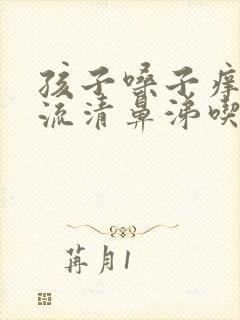 孩子嗓子痒
流清鼻涕喫
苒月1